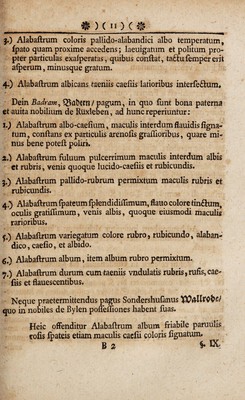 )( 11 )(
3.) Alabaſtrum coloris pallido-alabandici albo temperatum,
ſpato quam proxime accedens; laeuigatum et politum pro-
pter particulas exaſperatas, quibus conſtat, tactu ſemper erit
aſperum, minusque gratum.
4.) Alabaſtrum albicans taeniis caeſiis latioribus interſectum.
Dein Badram, Badern/ pagum, in quo ſunt bona paterna
et auita nobilium de Rüxleben, ad hunc reperiuntur:
1.) Alabaſtrum albo-caeſium, maculis interdum flauidis ſigna-
tum, conſtans ex particulis arenoſis graſſioribus, quare mi-
nus bene poteſt poliri.
2.) Alabaſtrum fuluum pulcerrimum maculis interdum albis
et rubris, venis quoque lucido-caeſiis et rubicundis.
3.) Alabaſtrum pallido-rubrum permixtum maculis rubris et
rubicundis.
4.) Alabaſtrum ſpateum ſplendidiſſimum, flauo colore tinctum,
oculis gratiſſimum, venis albis, quoque eiusmodi maculis
rarioribus.
5.) Alabaſtrum variegatum colore rubro, rubicundo, alaban-
dico, caeſio, et albido.
6.) Alabaſtrum album, item album rubro permixtum.
7.) Alabaſtrum durum cum taeniis vndulatis rubris, rufis, cae-
ſiis et flaueſcentibus.
Neque praetermittendus pagus Sondershuſanus Wallrode/
quo in nobiles de Bylen poſſeſſiones habent ſuas.
Heic offenditur Alabaſtrum album friabile paruulis
roſis ſpateis etiam maculis caeſii coloris ſignatum.
B 2 §. IX.